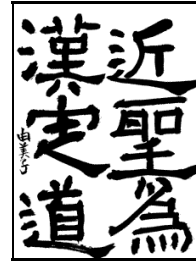 近聖為
漢定道
由美子